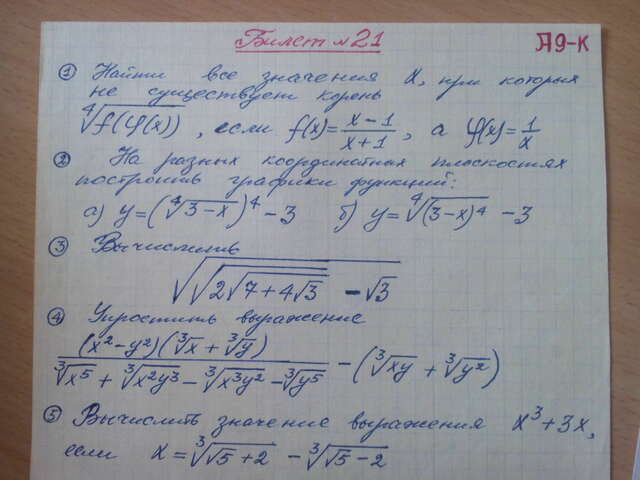 Билет №21
Я9-К
① Найти все значения x, при которых
не существует корень
⁴√(f(φ(x))), если f(x)=(x-1)/(x+1), а φ(x)=1/x
② На разных координатных плоскостях
построить графики функций:
а) y=(⁴√(3-x))⁴-3 б) y=⁴√((3-x)⁴)-3
③ Вычислить
√(√(2√(7+4√3))-√3)
④ Упростить выражение
((x²-y²)(³√x+³√y))/(³√x⁵+³√(x²y³)-³√(x³y²)-³√y⁵)-(³√(xy)+³√y²)
⑤ Вычислить значение выражения x³+3x,
если x=³√(√5+2)-³√(√5-2)